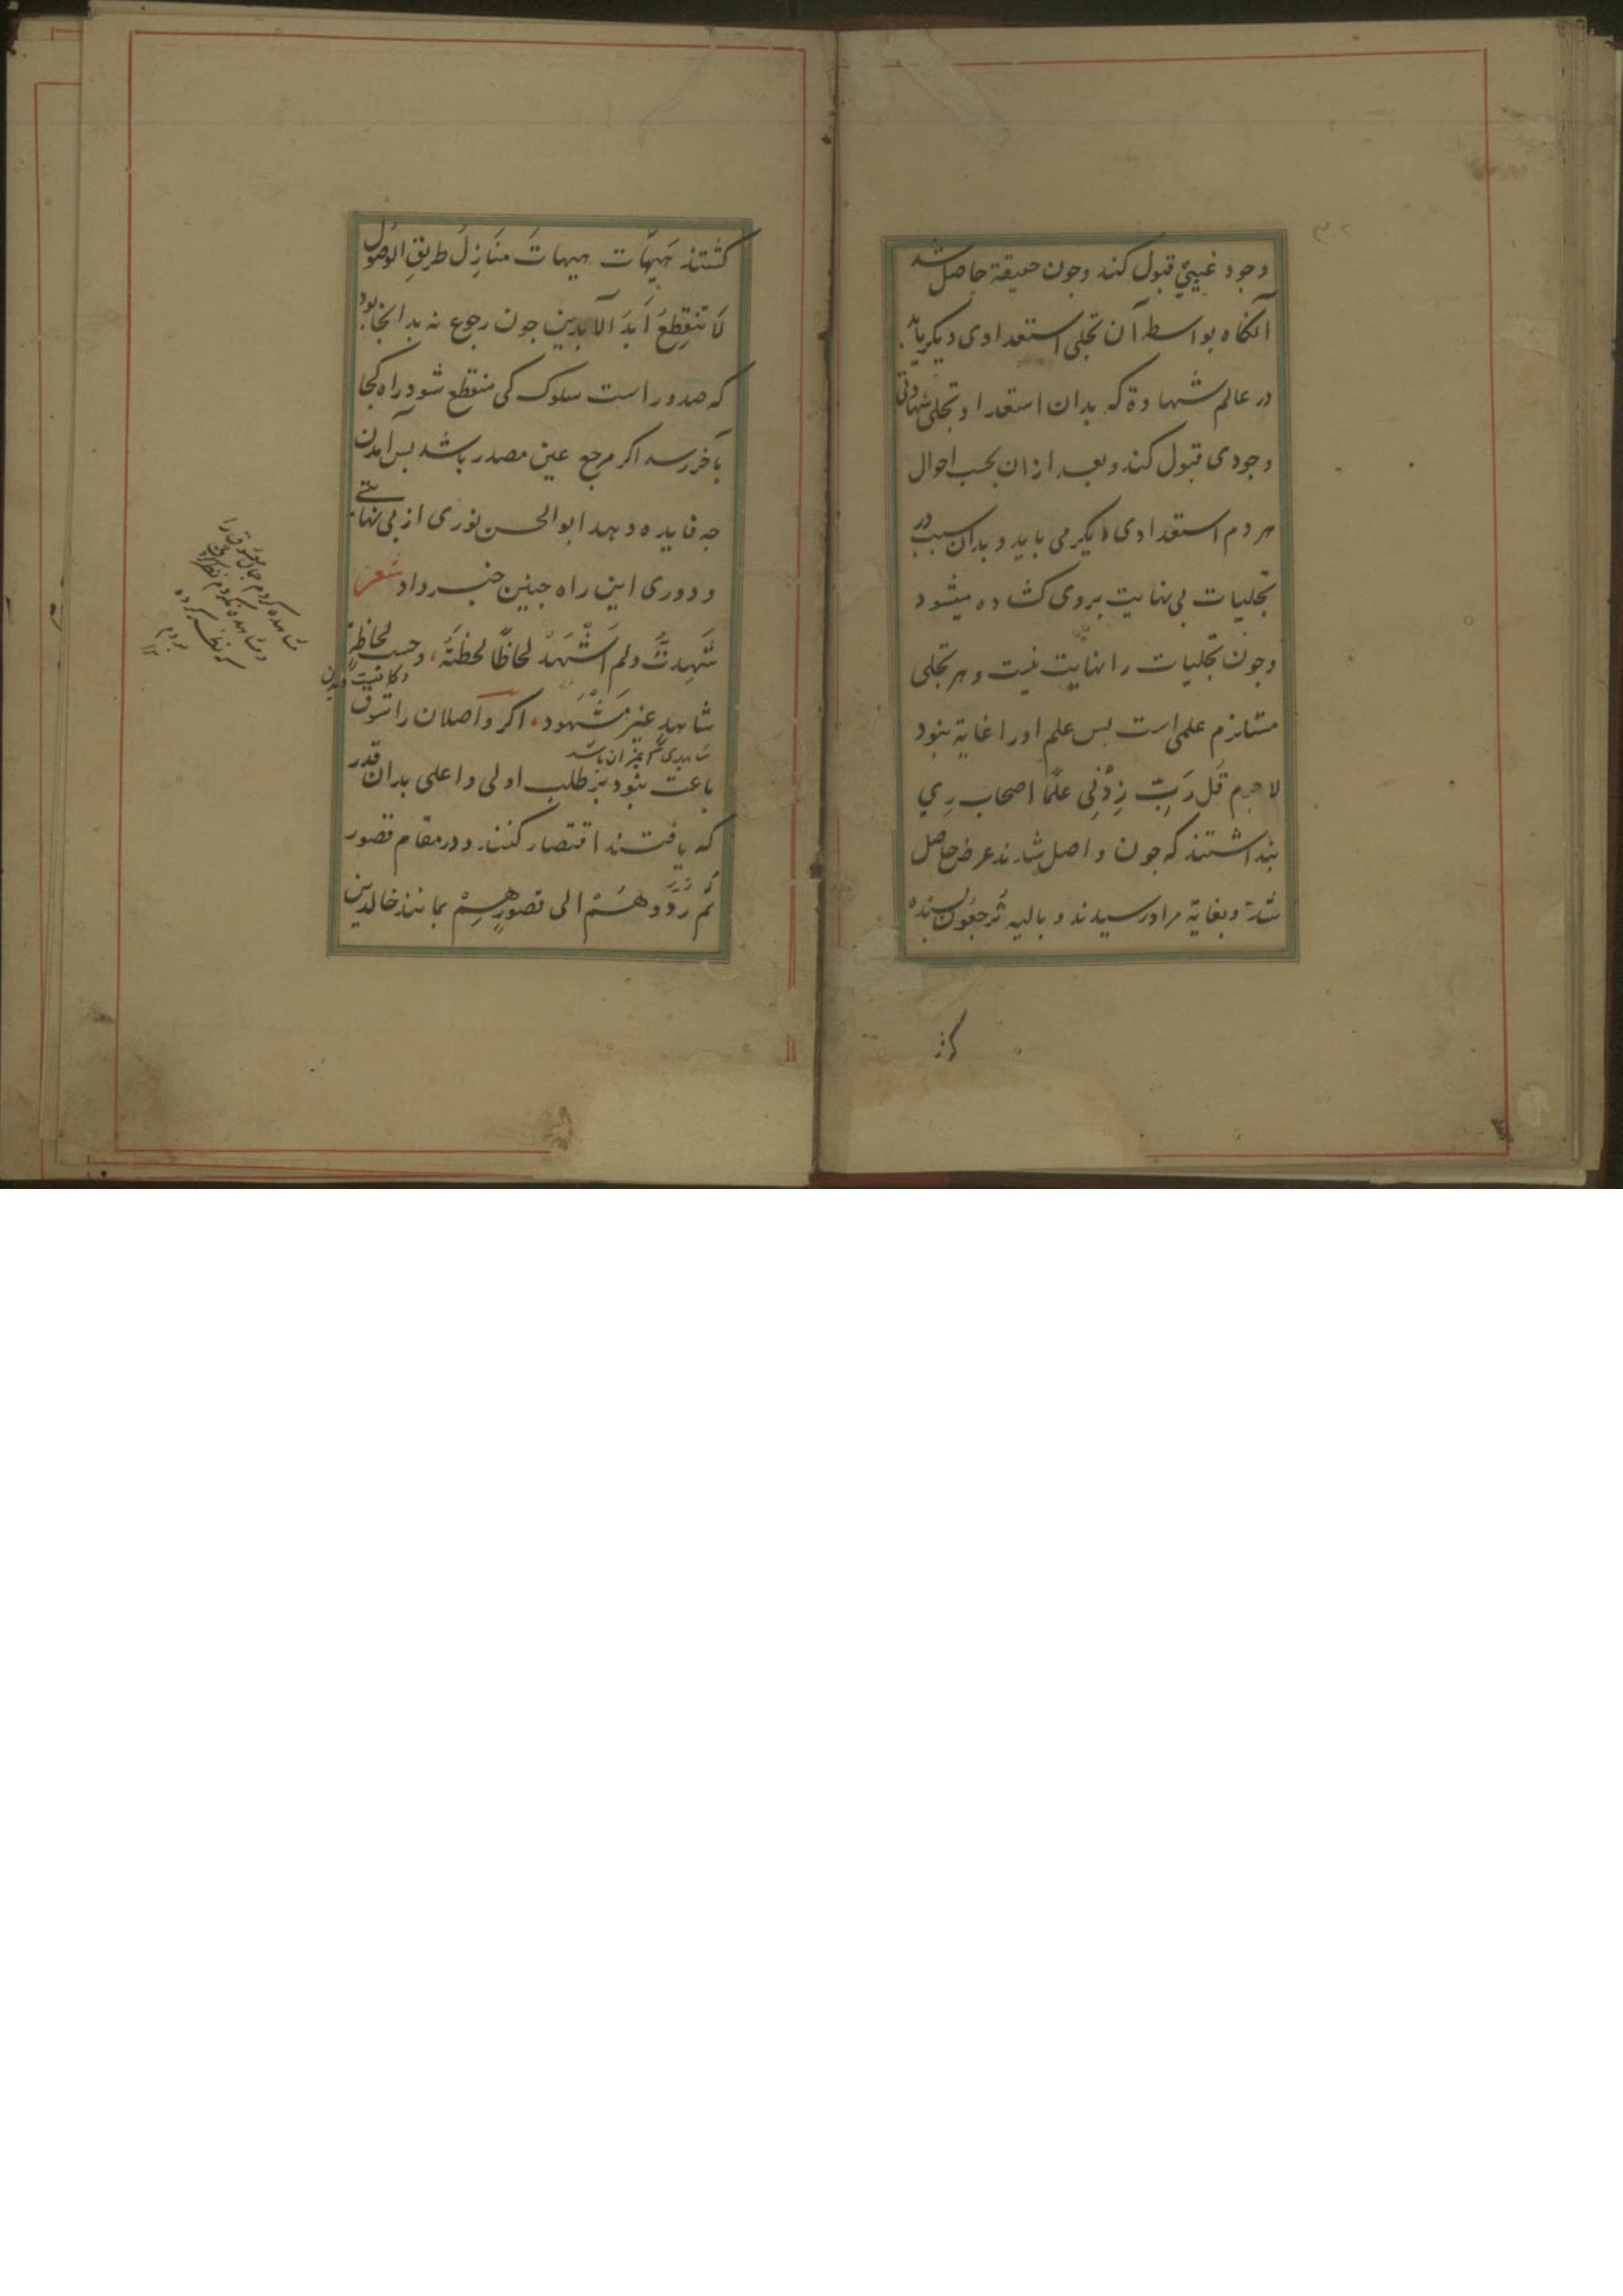 ۳۲
وجود غیبیّ قبول کند وجون حقیقة حاصل شد
آنکاه بواسطه آن تجلی استعدادی دیکر یابد
در عالم شهادة که بدان استعداد تجلی شهادتی
وجودی قبول کند وبعد ازان بحسب احوال
هردم استعدادی دیکر می یابد و بدان سبب در
تجلیات بی نهایت بروی کشاده میشود
وجون تجلیات را نهایت نیست و هر تجلی
مستلزم علمی است بس علم اورا غایة نبود
لاجرم قُل رَبِّ زِدْنِی عِلْمًا اصحاب رِي
بنداشتند که جون واصل شدند غرض حاصل
شد وبغایة مراد رسیدند و بالیه تُرجَعُون بسنده
کشتند هَیهَات هیهاتَ مَنَازِلُ طریقِ الوُصُولِ
لَا تنقطعُ اَبَدَ الآبدین جون رجوع نه بدانجا بود
که صدور است سلوک کی منقطع شود راه کجا
بآخر رسد اکر مرجع عین مصدر باشد بس آمدن
جه فایده دهد ابوالحسن نوری از بی نهایتی
ودوری این راه جنین خبر داد شعر
شَهِدتُ ولم اَشْهَدْ لحاظًا لحظتُهُ، وحسب لحاظٍ
شاهدٍ غیر مَشْهود، اکر واصلان را شوق
باعث نبود بر طلب اولی واعلی بدان قدر
که یافتند اقتصار کنند ودر مقام قصور
ثم رَدّوهُمْ الی قصورِهِمْ بمانند خالدین
مشاهده کردم جمال معشوق را